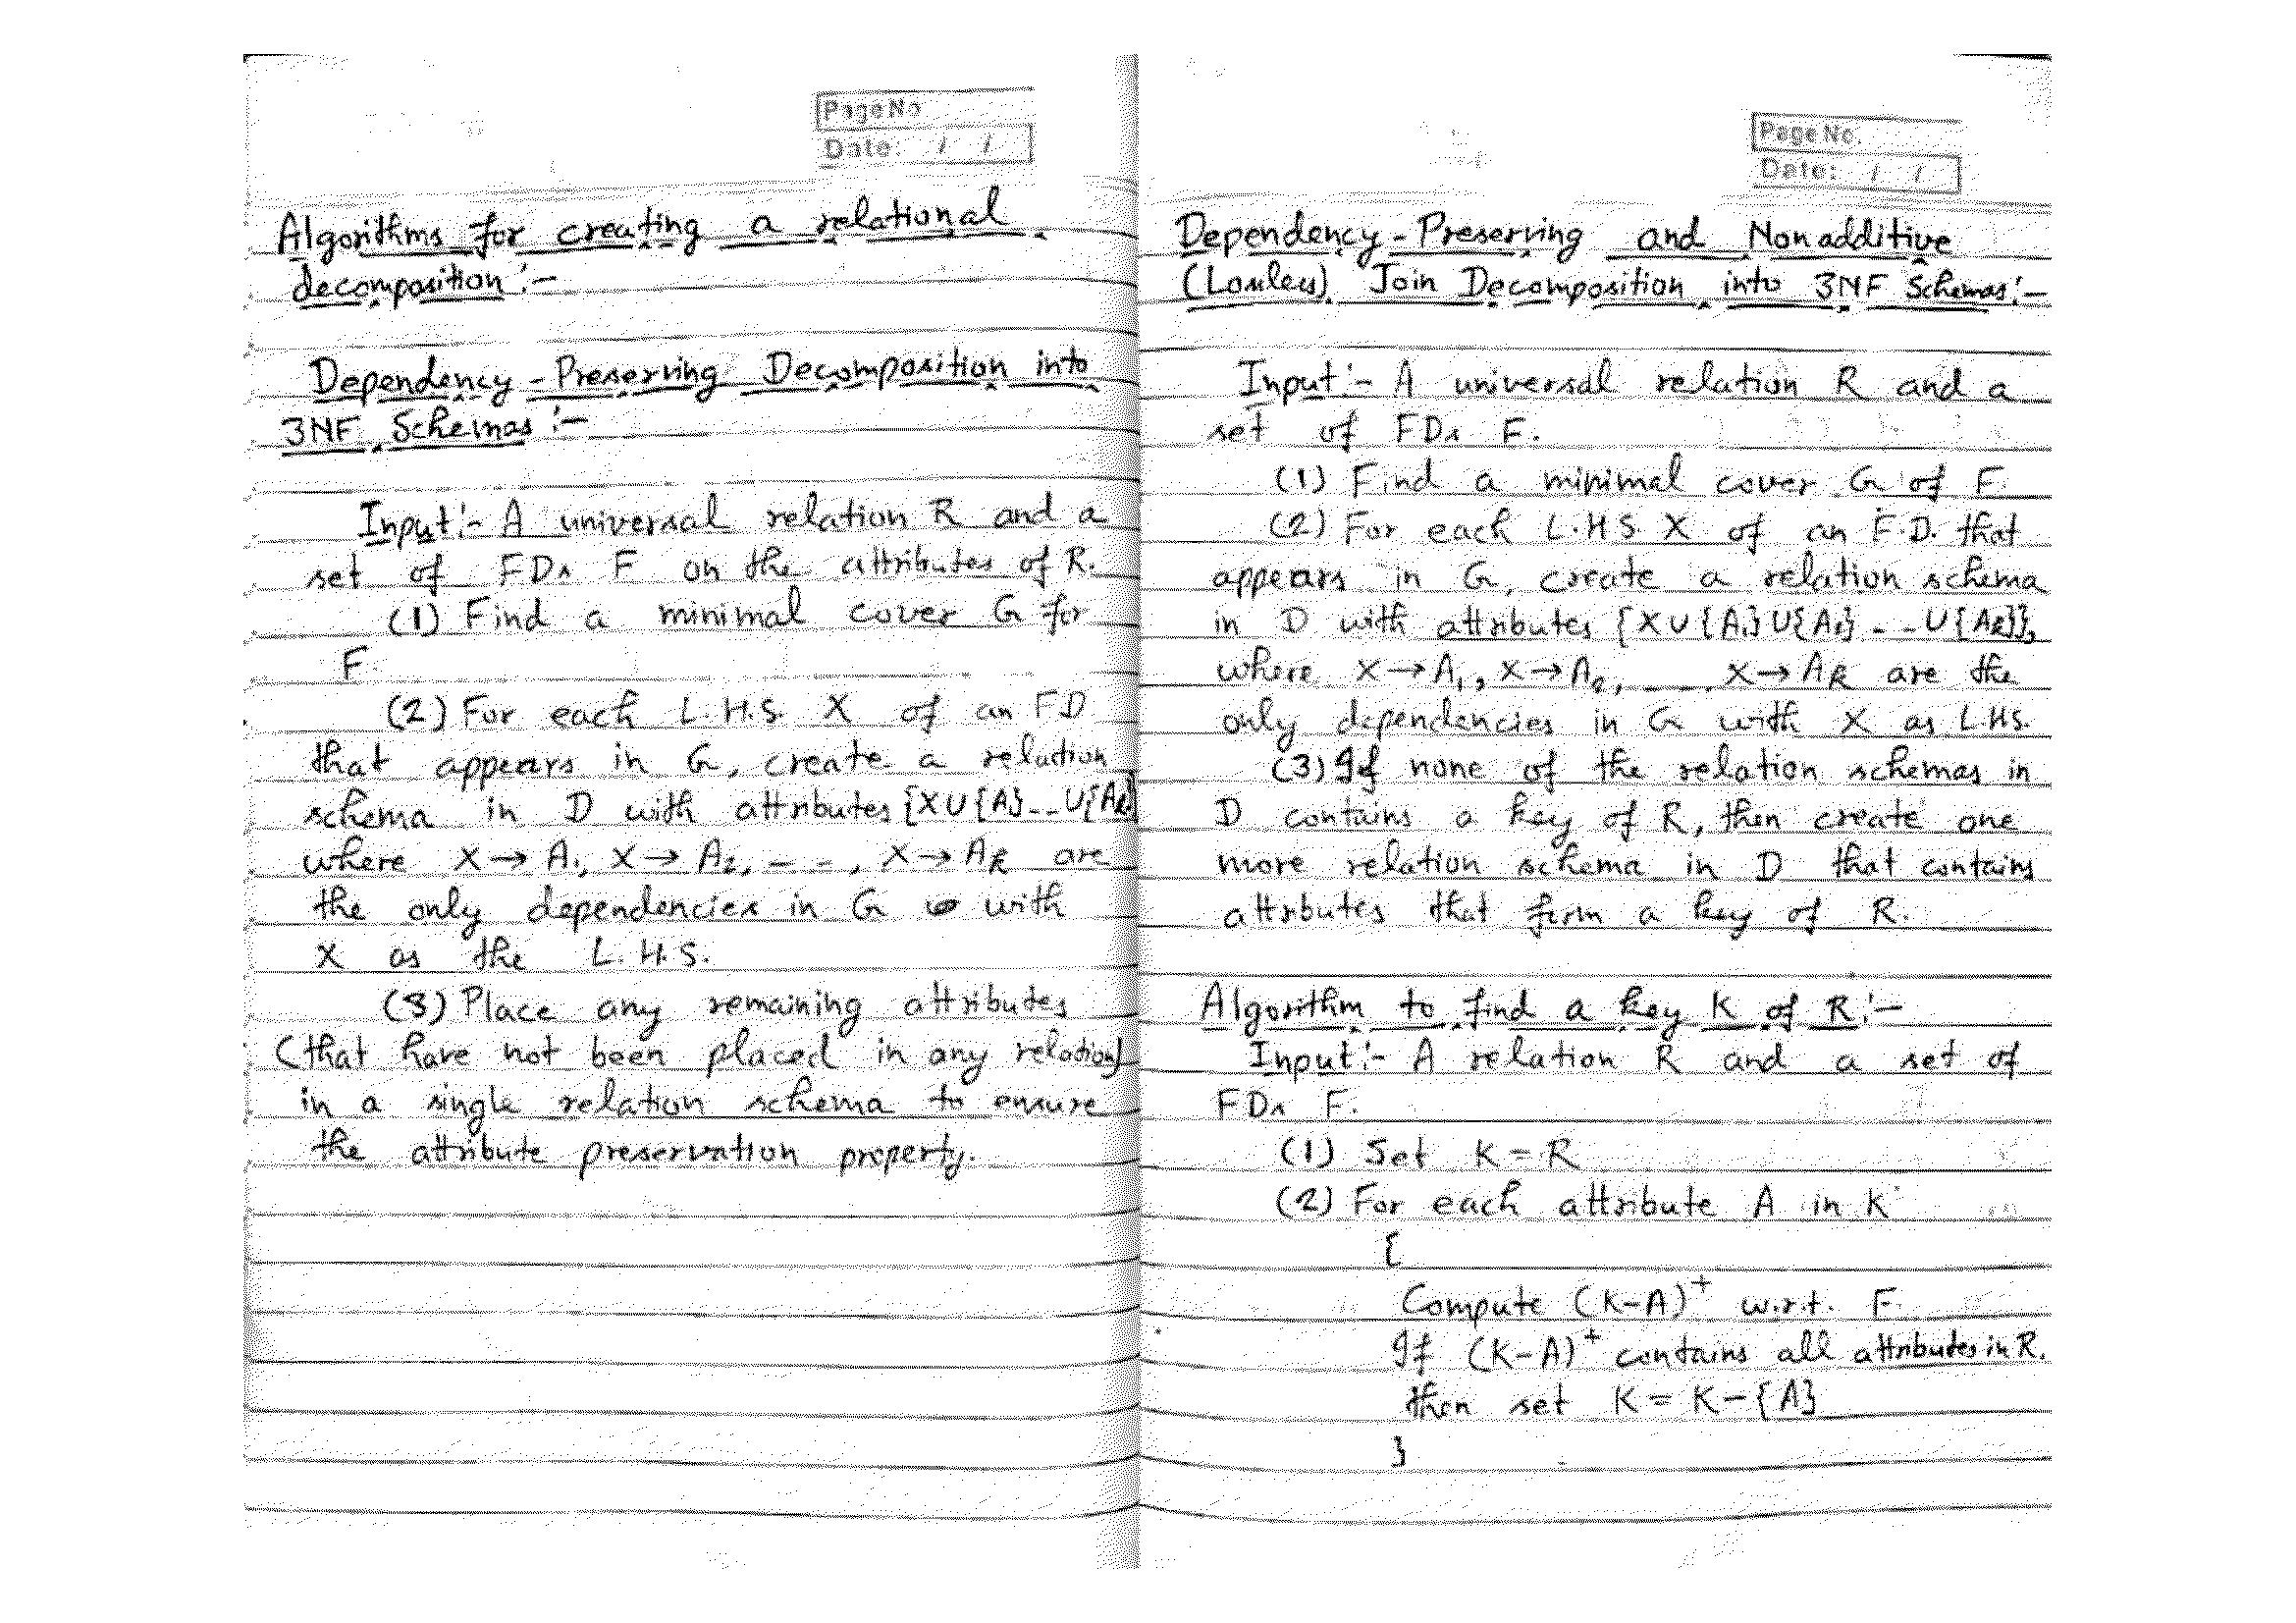 Page No
Date: / /
Algorithms for creating a relational
decomposition :-
Dependency - Preserving Decomposition into
3NF Schemas :-
Input :- A universal relation R and a
set of FDs F on the attributes of R.
(1) Find a minimal cover G for
F
(2) For each L.H.S. X of an FD
that appears in G, create a relation
schema in D with attributes {X U {A} -- U{Ak}
where X → A1, X → A2, - - -, X → Ak are
the only dependencies in G with
X as the L.H.S.
(3) Place any remaining attributes
(that have not been placed in any relation)
in a single relation schema to ensure
the attribute preservation property.
Page No.
Date: / /
Dependency - Preserving and Nonadditive
(Lossless) Join Decomposition into 3NF Schemas :-
Input :- A universal relation R and a
set of FDs F.
(1) Find a minimal cover G of F
(2) For each L.H.S. X of an F.D. that
appears in G, create a relation schema
in D with attributes {X U {A1} U{A2} - - U{Ak}},
where X → A1, X → A2, - - - X → Ak are the
only dependencies in G with X as L.H.S.
(3) If none of the relation schemas in
D contains a key of R, then create one
more relation schema in D that contains
attributes that form a key of R.
Algorithm to find a key K of R :-
Input :- A relation R and a set of
FDs F.
(1) Set K = R
(2) For each attribute A in K
{
Compute (K-A)+ w.r.t. F.
If (K-A)+ contains all attributes in R,
then set K = K - {A}
}